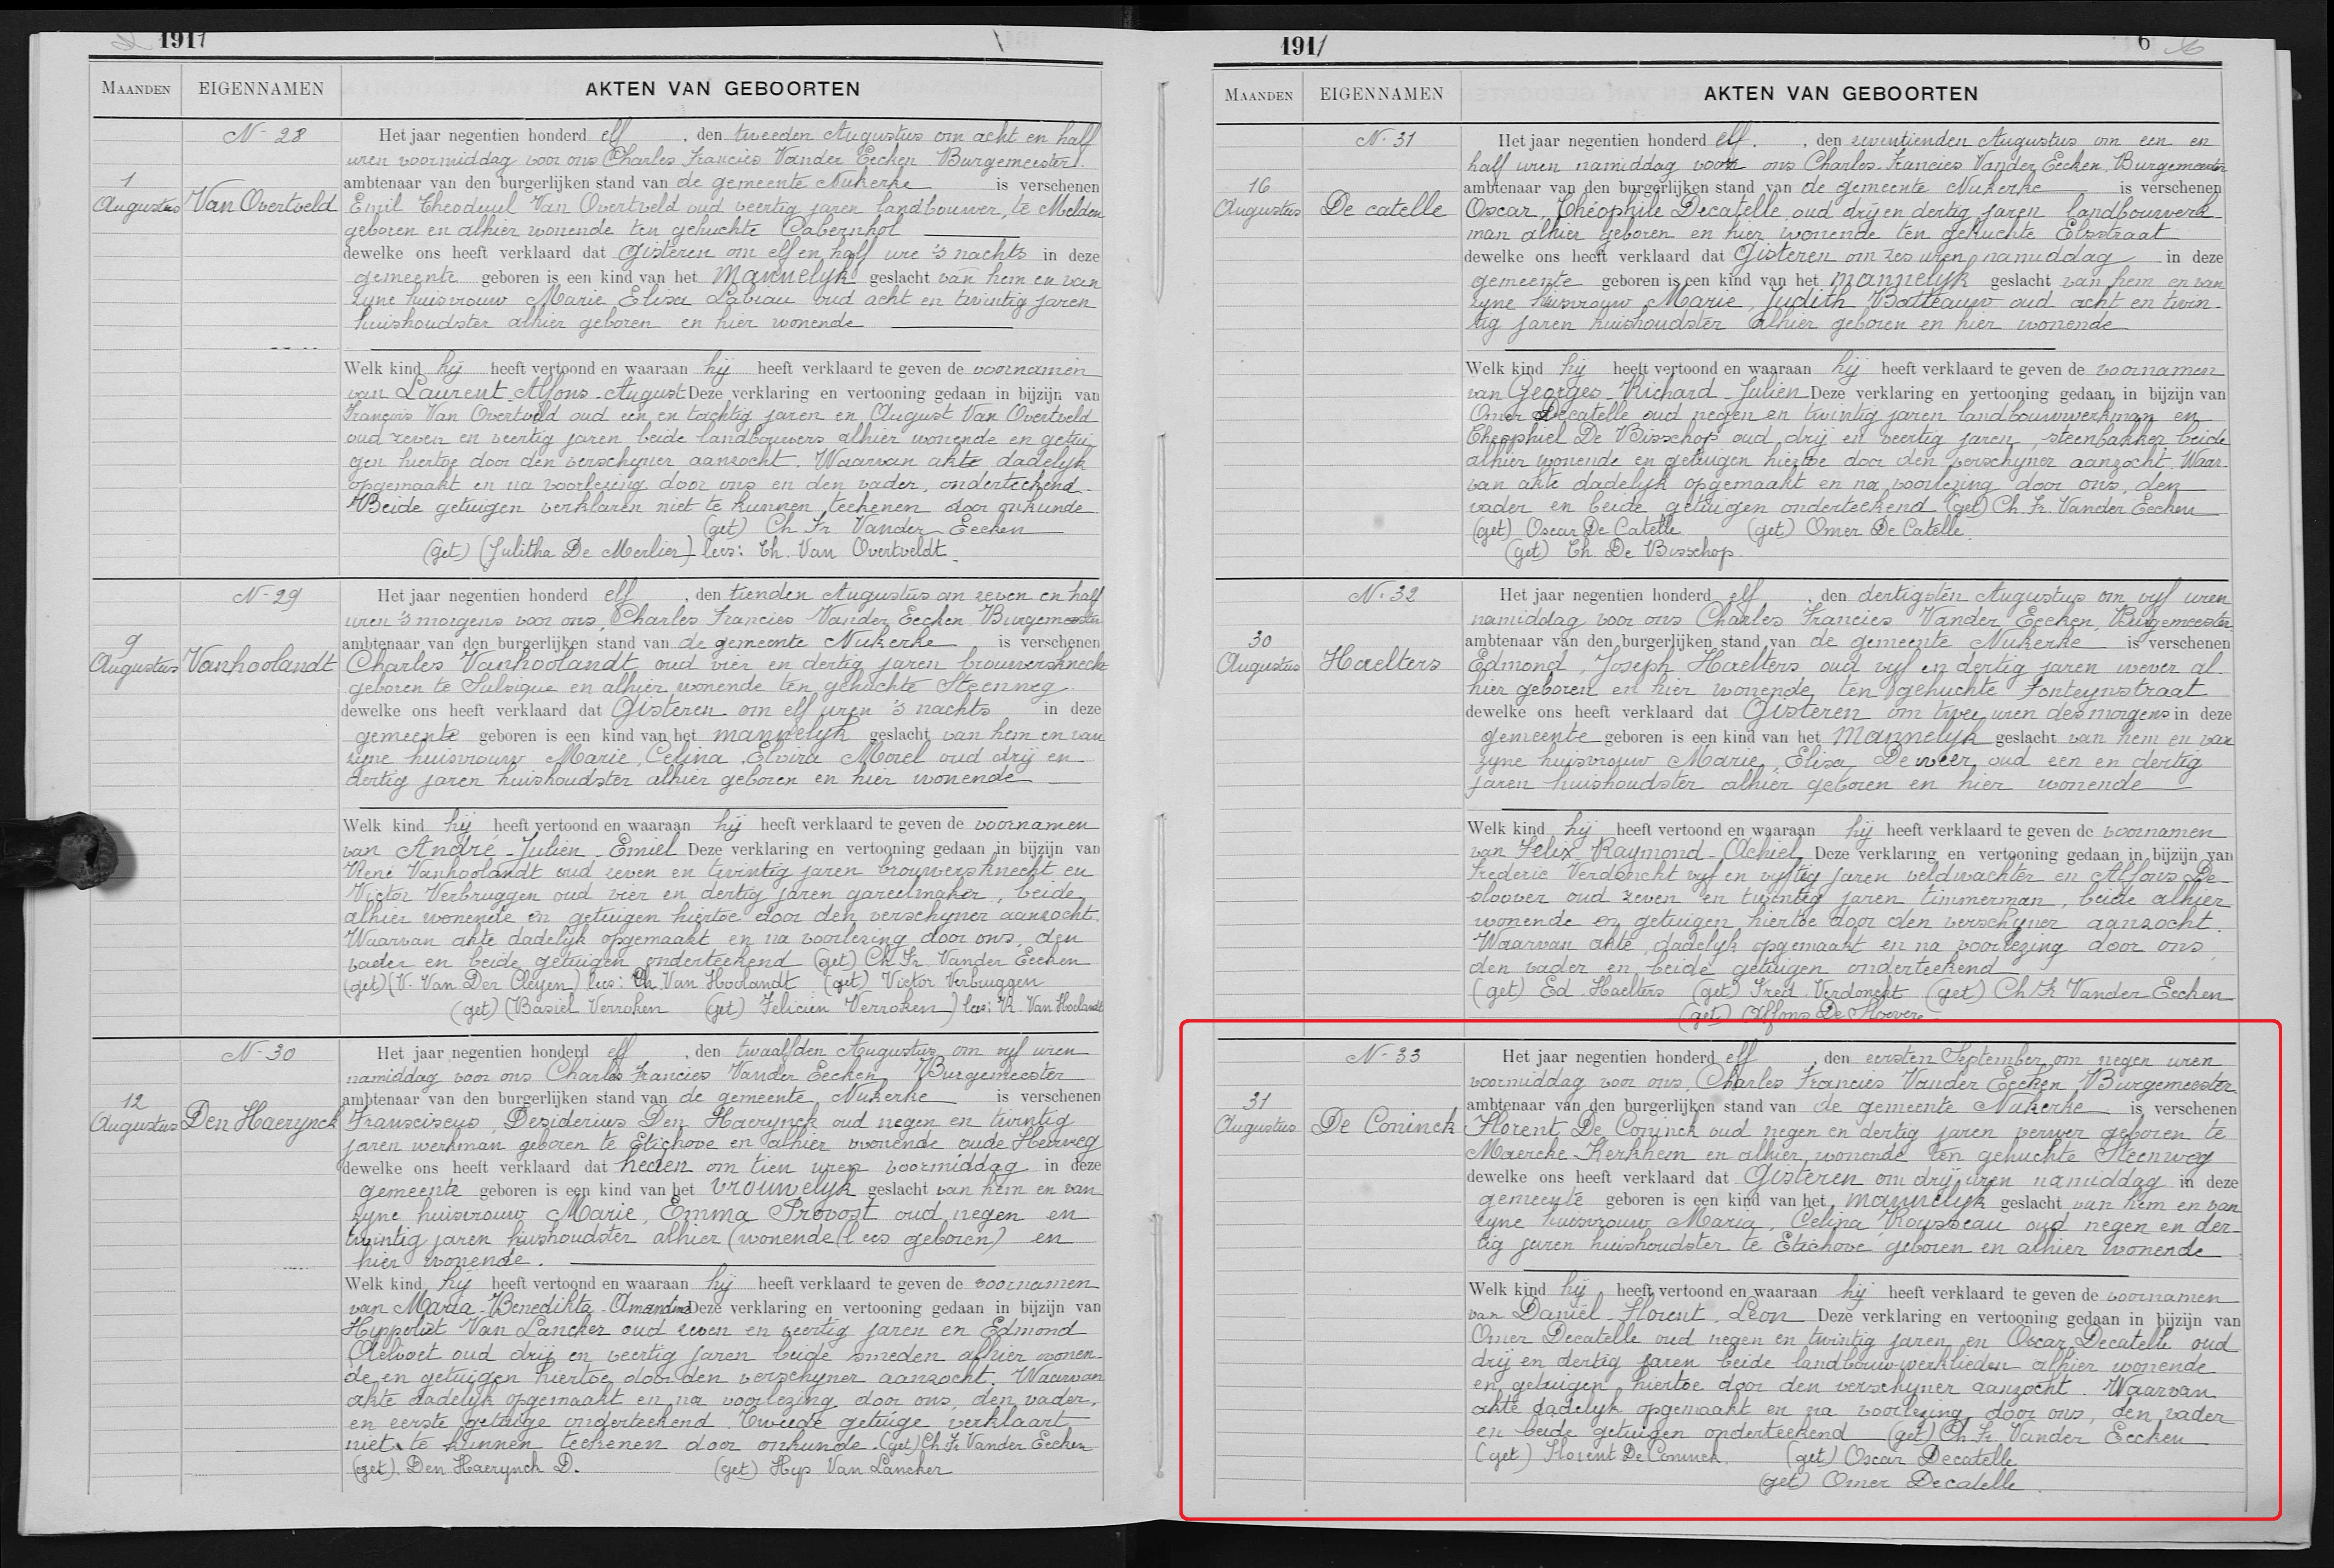 1911
MAANDEN EIGENNAMEN AKTEN VAN GEBOORTEN
N- 28
1
Augustus
Van Overtveld
Het jaar negentien honderd elf , den tweeden Augustus om acht en half
uren voormiddag voor ons Charles Francies Vander Eecken Burgemeester
ambtenaar van den burgerlijken stand van de gemeente Nukerke is verschenen
Emil Theoduul Van Overtveld oud veertig jaren landbouwer, te Melden
geboren en alhier wonende ten gehuchte Cabernhol
dewelke ons heeft verklaard dat Gisteren om elf en half ure 's nachts in deze
gemeente geboren is een kind van het Mannelyk geslacht van hem en van
zyne huisvrouw Marie Elisa Labiau oud acht en twintig jaren
huishoudster alhier geboren en hier wonende
Welk kind hij heeft vertoond en waaraan hij heeft verklaard te geven de voornamen
van Laurent-Alfons-August Deze verklaring en vertooning gedaan in bijzijn van
François Van Overtveld oud een en tachtig jaren en August Van Overtveld
oud zeven en veertig jaren beide landbouwers alhier wonende en getui
gen hiertoe door den verschyner aanzocht. Waarvan akte dadelyk
opgemaakt en na voorlezing door ons en den vader, onderteekend.
Beide getuigen verklaren niet te kunnen teekenen door onkunde
(get) Ch Fr Vander Eecken
(get) (Julitha De Merlier) lees: Th. Van Overtveldt.
N- 29
9
Augustus
Vanhoolandt
Het jaar negentien honderd elf , den tienden Augustus om zeven en half
uren 's morgens voor ons, Charles Francies Vander Eecken Burgemeester
ambtenaar van den burgerlijken stand van de gemeente Nukerke is verschenen
Charles Vanhoolandt oud vier en dertig jaren brouwersknecht
geboren te Sulsique en alhier wonende ten gehuchte Steenweg
dewelke ons heeft verklaard dat Gisteren om elf uren 's nachts in deze
gemeente geboren is een kind van het mannelyk geslacht van hem en van
zyne huisvrouw Marie, Celina, Elvira Morel oud drij en
dertig jaren huishoudster alhier geboren en hier wonende
Welk kind hij heeft vertoond en waaraan hij heeft verklaard te geven de voornamen
van André-Julien-Emiel Deze verklaring en vertooning gedaan in bijzijn van
René Vanhoolandt oud zeven en twintig jaren brouwersknecht en
Victor Verbruggen oud vier en dertig jaren gareelmaker, beide
alhier wonende en getuigen hiertoe door den verschyner aanzocht.
Waarvan akte dadelyk opgemaakt en na voorlezing door ons, den
vader en beide getuigen onderteekend (get) Ch Fr. Vander Eecken
(get) (V. Van Der Cleyen) lees: Ch. Van Hoolandt (get) Victor Verbruggen
(get) (Basiel Verroken (get) Felicien Verroken) lees: R. Van Hoolandt
N- 30
12
Augustus
Den Haerynck
Het jaar negentien honderd elf , den twaalfden Augustus om vyf uren
namiddag voor ons Charles Francies Vander Eecken Burgemeester
ambtenaar van den burgerlijken stand van de gemeente Nukerke is verschenen
Franciscus, Desiderius Den Haerynck oud negen en twintig
jaren werkman geboren te Etichove en alhier wonende oude Heerweg
dewelke ons heeft verklaard dat heden om tien uren voormiddag in deze
gemeente geboren is een kind van het vrouwelyk geslacht van hem en van
zyne huisvrouw Marie, Emma Provost oud negen en
twintig jaren huishoudster alhier (wonende (lees geboren) en
hier wonende.
Welk kind hij heeft vertoond en waaraan hij heeft verklaard te geven de voornamen
van Maria-Benedikta-Amandina Deze verklaring en vertooning gedaan in bijzijn van
Hyppoliet Van Lancker oud zeven en veertig jaren en Edmond
Aelvoet oud drij en veertig jaren beide smeden alhier wonen-
de en getuigen hiertoe door den verschyner aanzocht. Waarvan
akte dadelyk opgemaakt en na voorlezing door ons, den vader,
en eerste getuige onderteekend. Tweede getuige verklaart
niet te kunnen teekenen door onkunde. (get) Ch Fr Vander Eecken
(get). Den Haerynck D. (get) Hyp Van Lancker
1911 6
MAANDEN EIGENNAMEN AKTEN VAN GEBOORTEN
N. 31
16
Augustus
De catelle
Het jaar negentien honderd elf. , den zeventienden Augustus om een en
half uren namiddag voor ons Charles Francies Vander Eecken, Burgemeester
ambtenaar van den burgerlijken stand van de gemeente Nukerke is verschenen
Oscar, Théophile Decatelle, oud drij en dertig jaren landbouwwerk
man alhier geboren en hier wonende ten gehuchte Elsstraat
dewelke ons heeft verklaard dat Gisteren om zes uren namiddag in deze
gemeente geboren is een kind van het mannelyk geslacht van hem en van
zyne huisvrouw Marie, Judith Batteauw oud acht en twin-
tig jaren huishoudster alhier geboren en hier wonende
Welk kind hij heeft vertoond en waaraan hij heeft verklaard te geven de voornamen
van Georges-Richard-Julien Deze verklaring en vertooning gedaan in bijzijn van
Omer Decatelle oud negen en twintig jaren landbouwwerkman en
Theophiel De Bisschop oud drij en veertig jaren, steenbakker beide
alhier wonende en getuigen hiertoe door den verschyner aanzocht. Waar-
van akte dadelyk opgemaakt en na voorlezing door ons, den
vader en beide getuigen onderteekend (get) Ch. Fr. Vander Eecken
(get) Oscar De Catelle (get) Omer De Catelle.
(get) Th. De Bisschop.
N. 32
30
Augustus
Haelters
Het jaar negentien honderd elf , den dertigsten Augustus om vyf uren
namiddag voor ons Charles Francies Vander Eecken, Burgemeester
ambtenaar van den burgerlijken stand van de gemeente Nukerke is verschenen
Edmond, Joseph Haelters oud vyf en dertig jaren wever al-
hier geboren en hier wonende ten gehuchte Fonteynstraat
dewelke ons heeft verklaard dat Gisteren om twee uren des morgens in deze
gemeente geboren is een kind van het Mannelyk geslacht van hem en van
zyne huisvrouw Marie, Elisa De weer oud een en dertig
jaren huishoudster alhier geboren en hier wonende
Welk kind hij heeft vertoond en waaraan hij heeft verklaard te geven de voornamen
van Felix-Raymond-Achiel Deze verklaring en vertooning gedaan in bijzijn van
Frederic Verdonckt vyf en vyftig jaren veldwachter en Alfons De-
sloover oud zeven en twintig jaren timmerman, beide alhier
wonende en getuigen hiertoe door den verschyner aanzocht.
Waarvan akte dadelyk opgemaakt en na voorlezing door ons,
den vader en beide getuigen onderteekend
(get) Ed. Haelters (get) Fred. Verdonckt (get) Ch Fr Vander Eecken
(get) Alfons De Sloovere
N- 33
31
Augustus
De Coninck
Het jaar negentien honderd elf , den eersten September om negen uren
voormiddag voor ons, Charles Francies Vander Eecken Burgemeester
ambtenaar van den burgerlijken stand van de gemeente Nukerke is verschenen
Florent De Coninck oud negen en dertig jaren verwer geboren te
Maercke Kerkhem en alhier wonende ten gehuchte Steenweg
dewelke ons heeft verklaard dat Gisteren om drij uren namiddag in deze
gemeente geboren is een kind van het mannelyk geslacht van hem en van
zyne huisvrouw Maria, Celina Rousseau oud negen en der-
tig jaren huishoudster te Etichove geboren en alhier wonende
Welk kind hij heeft vertoond en waaraan hij heeft verklaard te geven de voornamen
van Daniël-Florent-Leon Deze verklaring en vertooning gedaan in bijzijn van
Omer Decatelle oud negen en twintig jaren en Oscar Decatelle oud
drij en dertig jaren beide landbouwwerklieden alhier wonende
en getuigen hiertoe door den verschyner aanzocht. Waarvan
akte dadelyk opgemaakt en na voorlezing door ons, den vader
en beide getuigen onderteekend (get) Ch Fr Vander Eecken
(get) Florent De Coninck. (get) Oscar Decatelle
(get) Omer Decatelle.